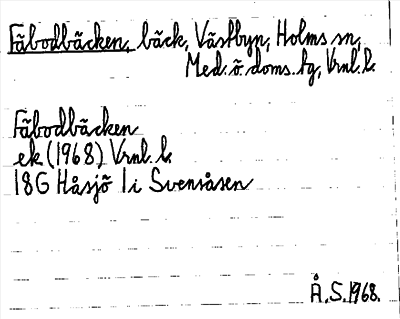 Fäbodbäcken, bäck, Västbyn, Holms sn,
Med. ö. doms. tg, Vrnl. l.
Fäbodbäcken
ek (1968) Vrnl. l.
18G Håsjö 1i Svensåsen
Å.S. 1968.